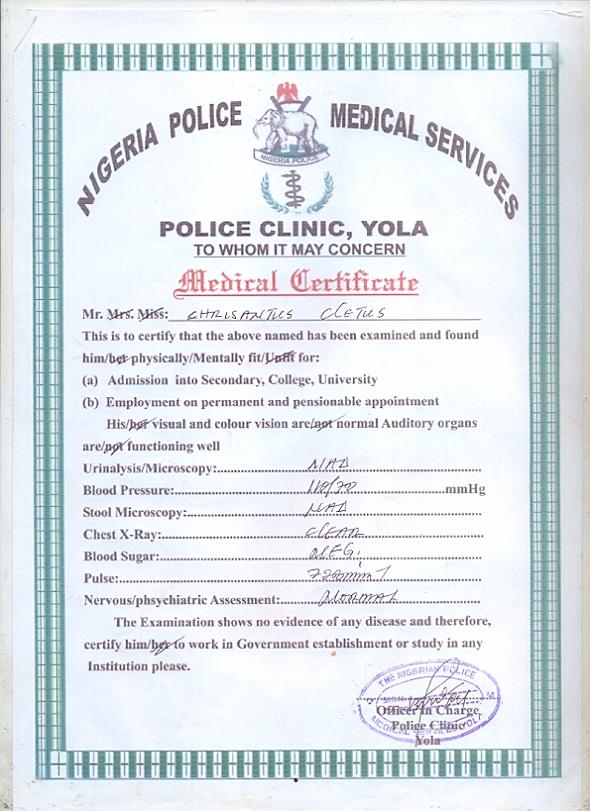 NIGERIA POLICE MEDICAL SERVICES
NIGERIA POLICE
POLICE CLINIC, YOLA
TO WHOM IT MAY CONCERN
Medical Certificate
Mr. Mrs. Miss: CHRISANTUS CLETUS
This is to certify that the above named has been examined and found
him/her physically/Mentally fit/Unfit for:
(a) Admission into Secondary, College, University
(b) Employment on permanent and pensionable appointment
His/her visual and colour vision are/not normal Auditory organs
are/not functioning well
Urinalysis/Microscopy: NAD
Blood Pressure: mmHg
Stool Microscopy: NAD
Chest X-Ray: CLEAR
Blood Sugar: NEG.
Pulse:
Nervous/phsychiatric Assessment: NORMAL
The Examination shows no evidence of any disease and therefore,
certify him/her to work in Government establishment or study in any
Institution please.
THE NIGERIAN POLICE
SIGN
Officer In Charge
Police Clinic
Yola
MEDICAL SERVICES YOLA